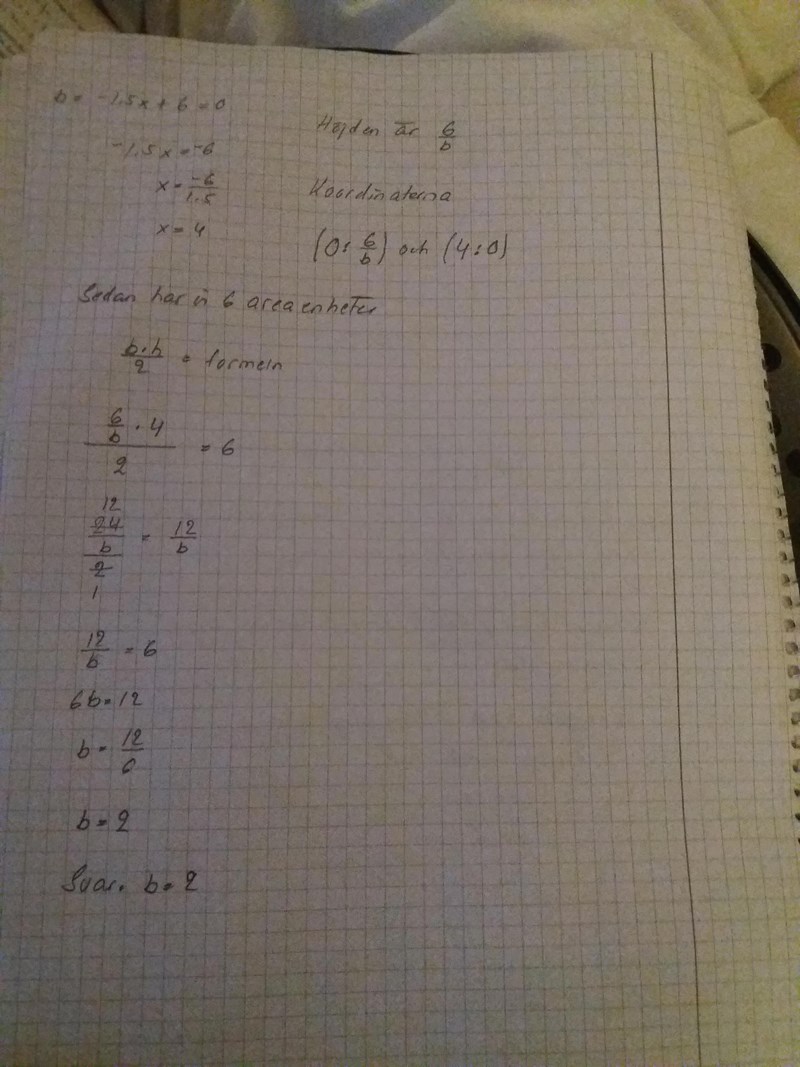 b = -1.5x + 6 = 0
-1.5x = -6
x = -6/1.5
x = 4
Höjden är 6/b
Koordinaterna
(0; 6/b) och (4;0)
Sedan har vi 6 areaenheter
b·h/2 = formeln
(6/b · 4)/2 = 6
12
24/b/2 = 12/b
1
12/b = 6
6b = 12
b = 12/6
b = 2
Svar. b = 2